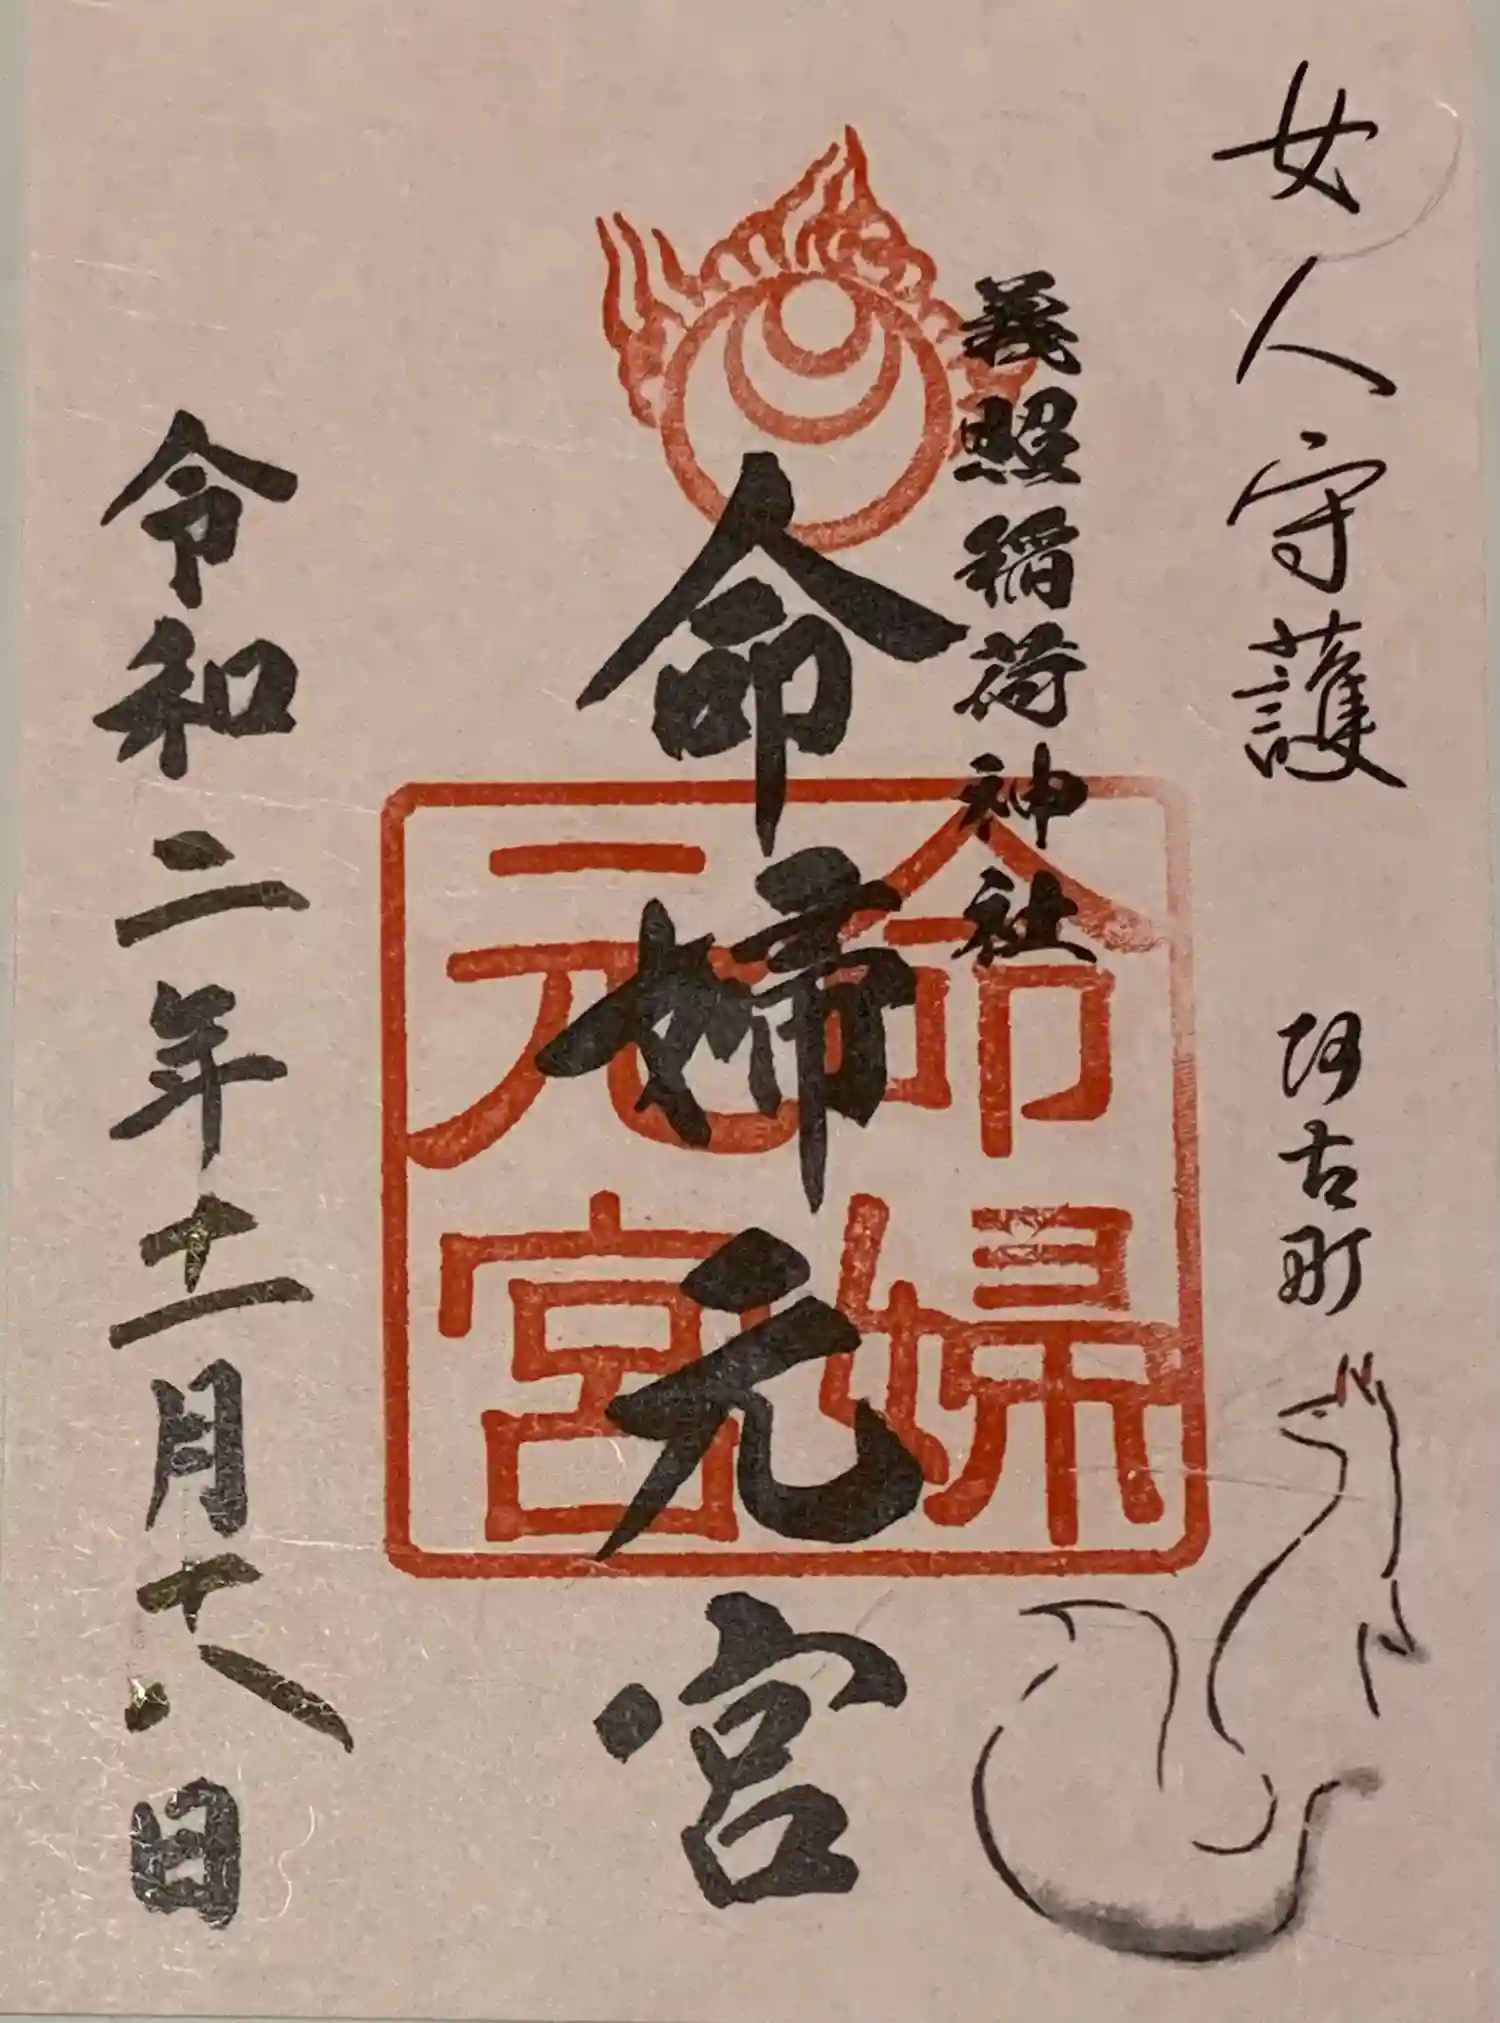 女人守護 阿古町
義照稲荷神社
命婦元宮
命婦
元宮
令和二年十二月十八日